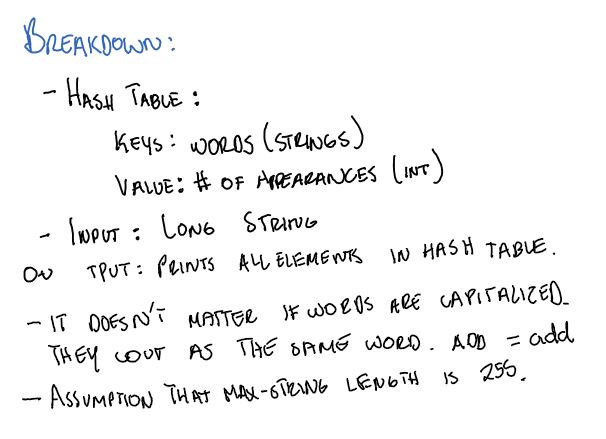 BREAKDOWN:
- HASH TABLE:
KEYS: WORDS (STRINGS)
VALUE: # OF APPEARANCES (INT)
- INPUT: LONG STRING
OU TPUT: PRINTS ALL ELEMENTS IN HASH TABLE.
- IT DOESN'T MATTER IF WORDS ARE CAPITALIZED.
THEY COUT AS THE SAME WORD. ADD = add
- ASSUMPTION THAT MAX-STRING LENGTH IS 255.